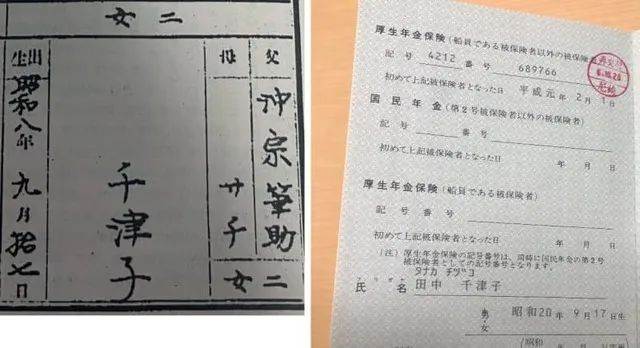 二女
父
沖宗筆助
母
サチ
二女
千津子
出生
昭和八年九月拾七日
厚生年金保険(船員である被保険者以外の被保険者)
記号 4212 番号 689766
初めて上記被保険者となった日 平成元年2月1日
国民年金(第2号被保険者以外の被保険者)
記号 番号
初めて上記被保険者となった日 年 月 日
厚生年金保険(船員である被保険者)
記号 番号
初めて上記被保険者となった日 年 月 日
(注)厚生年金保険の記号番号は、同時に国民年金の第2号
被保険者としての記号番号となります。
タナカ チヅコ
氏名 田中 千津子
男・女 昭和20年9月17日生